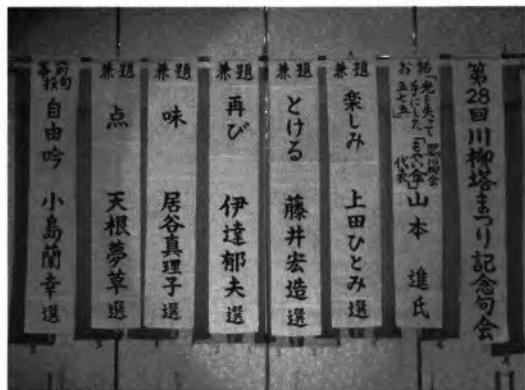 第28回川柳塔まつり記念句会
話「光を失って
手にした
お五七五」
「もやい傘」
代表
山本 進氏
兼題 楽しみ 上田ひとみ選
兼題 とける 藤井宏造選
兼題 再び 伊達郁夫選
兼題 味 居谷真理子選
兼題 点 天根夢草選
前句
事投 自由吟 小島蘭幸選